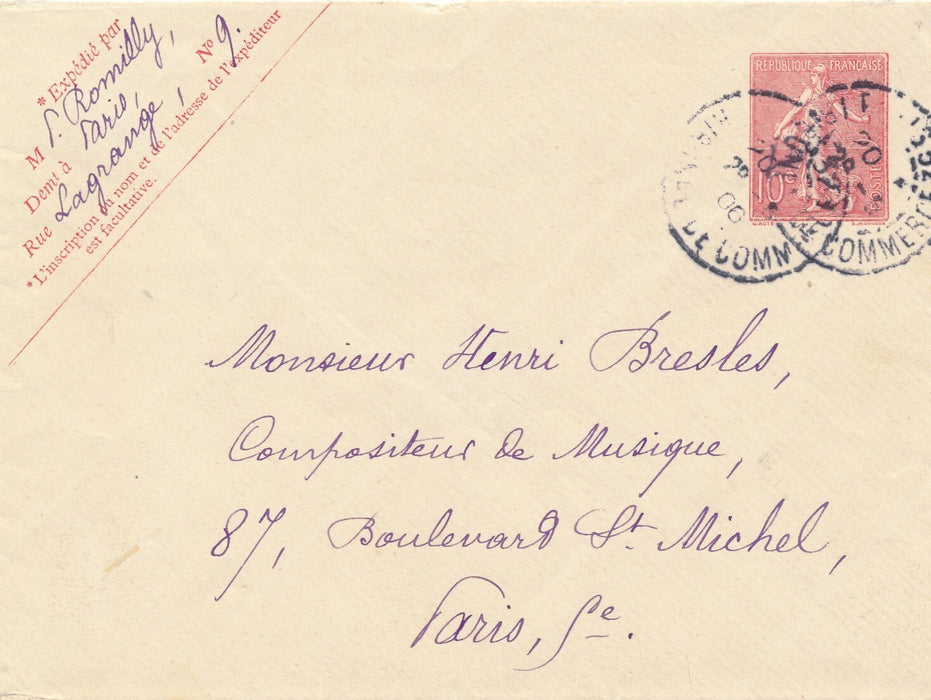 * Expédié par
M T. Romilly,
Demt à Paris,
Rue Lagrange, No 9.
* L'inscription du nom et de l'adresse de l'expéditeur
est facultative.
REPUBLIQUE FRANÇAISE
10c
POSTES
DE COMM
06
COMMERCE
Monsieur Henri Bresles,
Compositeur de Musique,
87, Boulevard St. Michel,
Paris, Se.